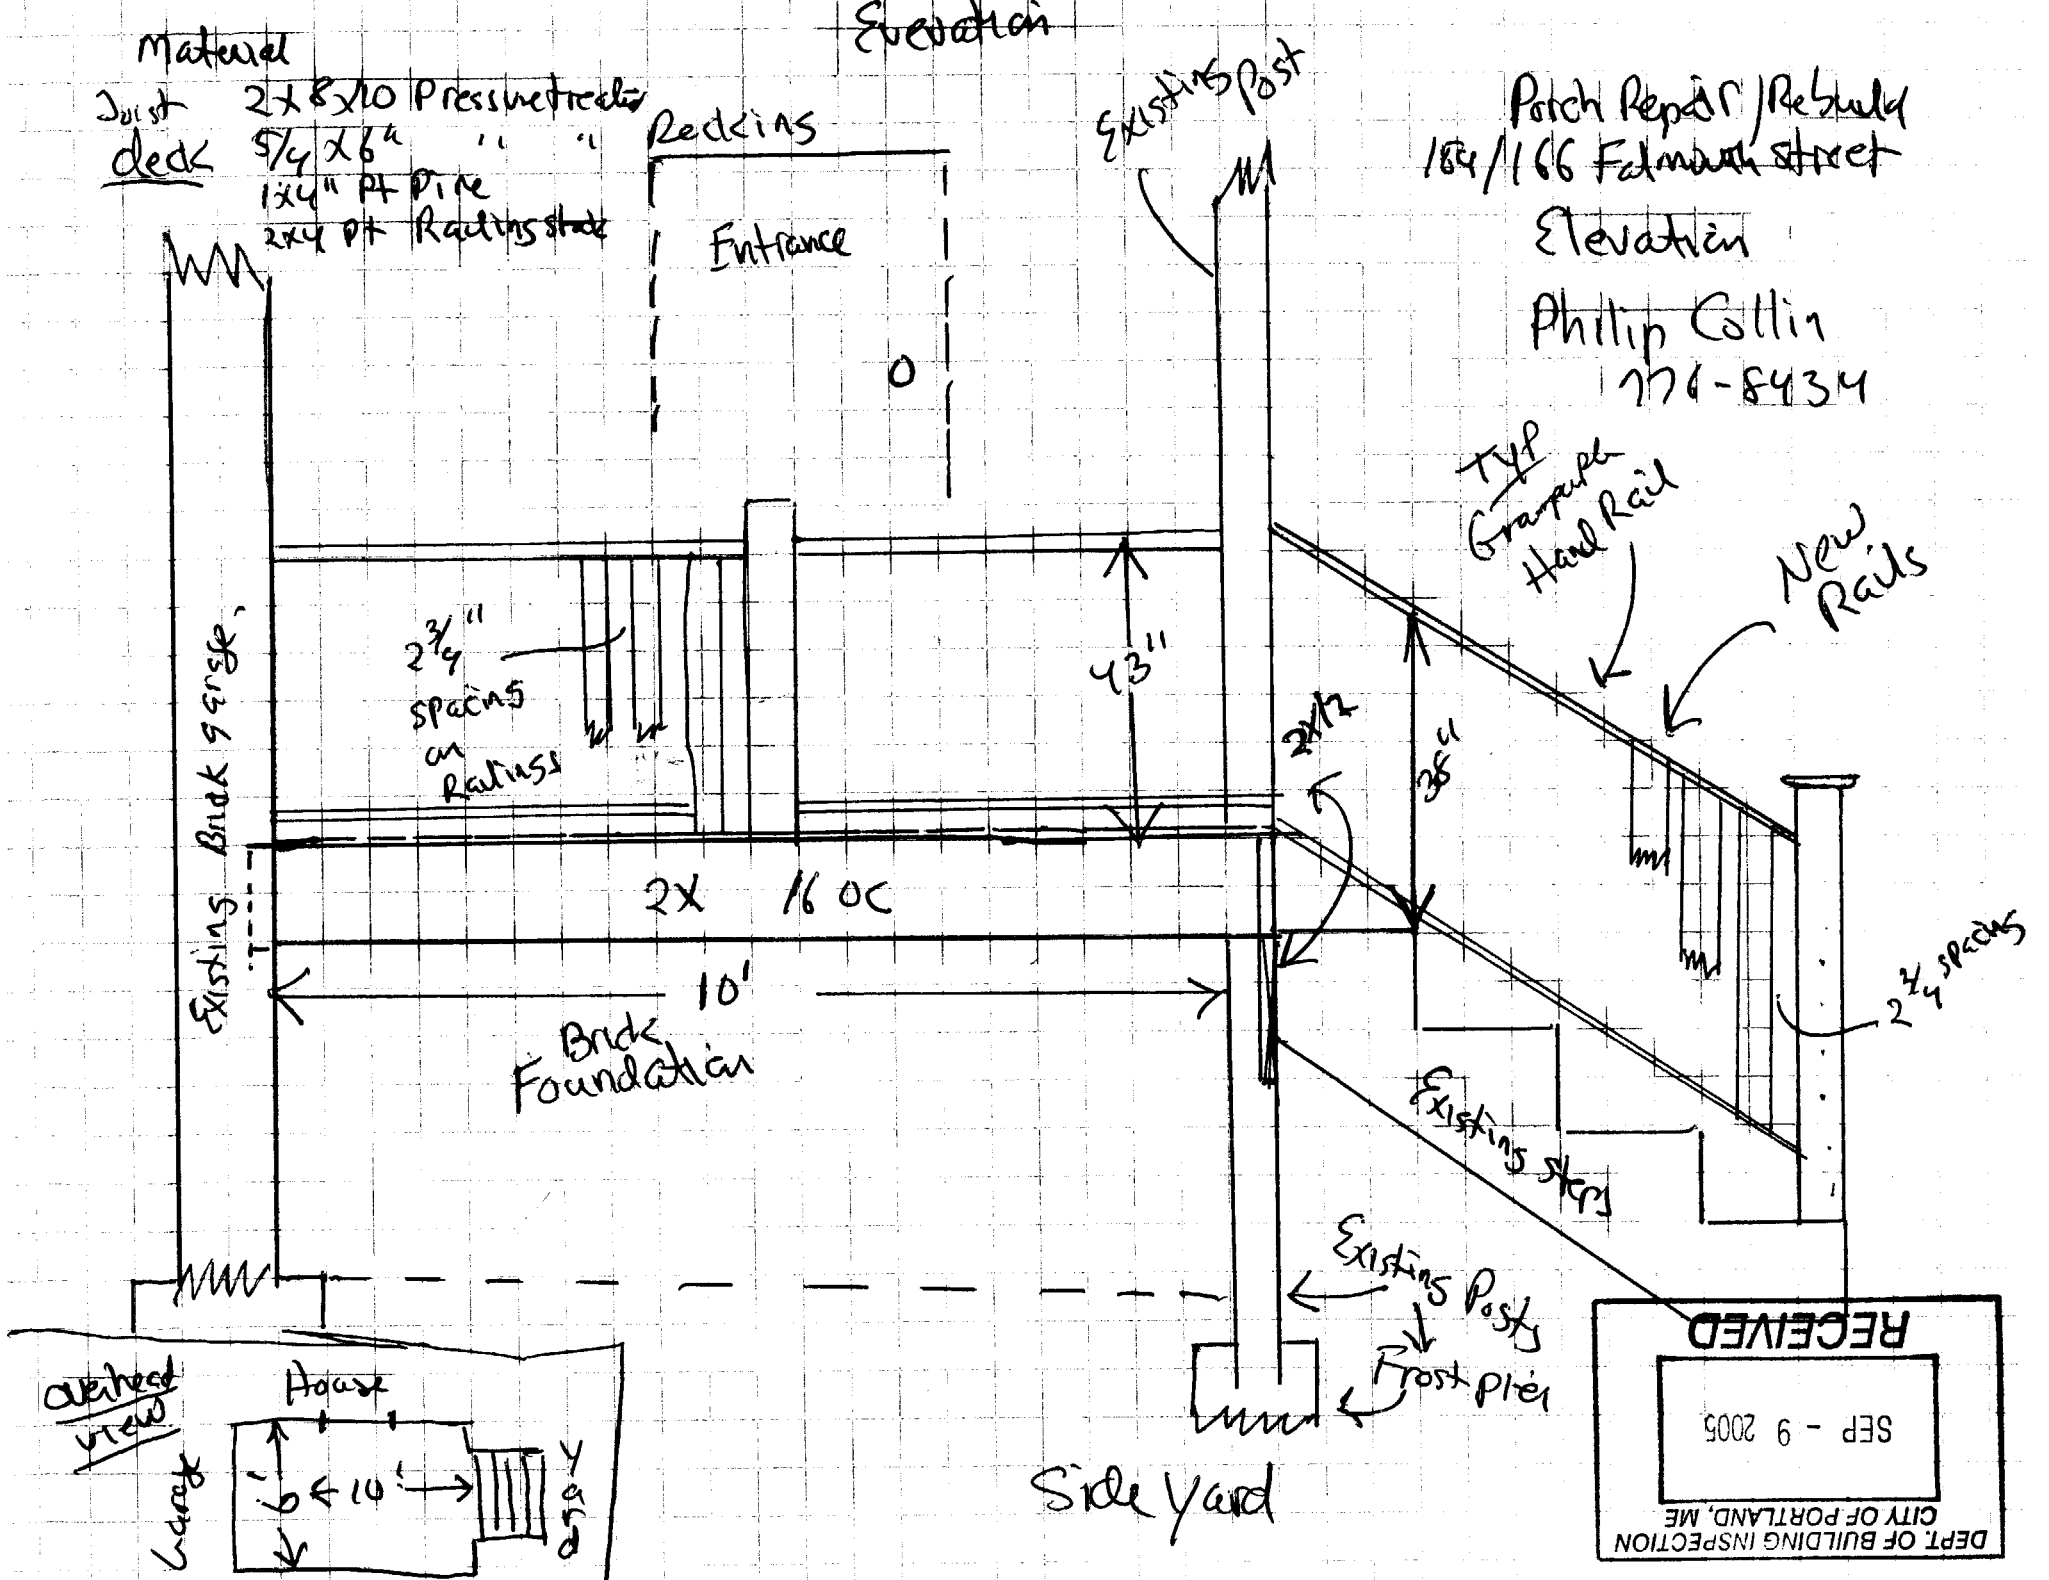 Elevation
Material
Joist 2x8x10 Pressure treated
deck 5/4 x 6" " "
1x4" Pt Pine
2x4 Pt Railing stock
Decking
Entrance
Existing Post
Porch Repair/Rebuild
164/166 Falmouth Street
Elevation
Philip Collin
776-8434
TYP
Hand Rail
New
Rails
2 3/4"
spacing
on
Railings
43"
2x12
38"
Existing Brick garage.
2X 16 OC
2 3/4 spacing
10'
Brick
Foundation
Existing steps
Existing Posts
Frost Pier
Side Yard
overhead
view
House
Garage
6'
10'
Yard
RECEIVED
SEP - 9 2005
DEPT. OF BUILDING INSPECTION
CITY OF PORTLAND, ME